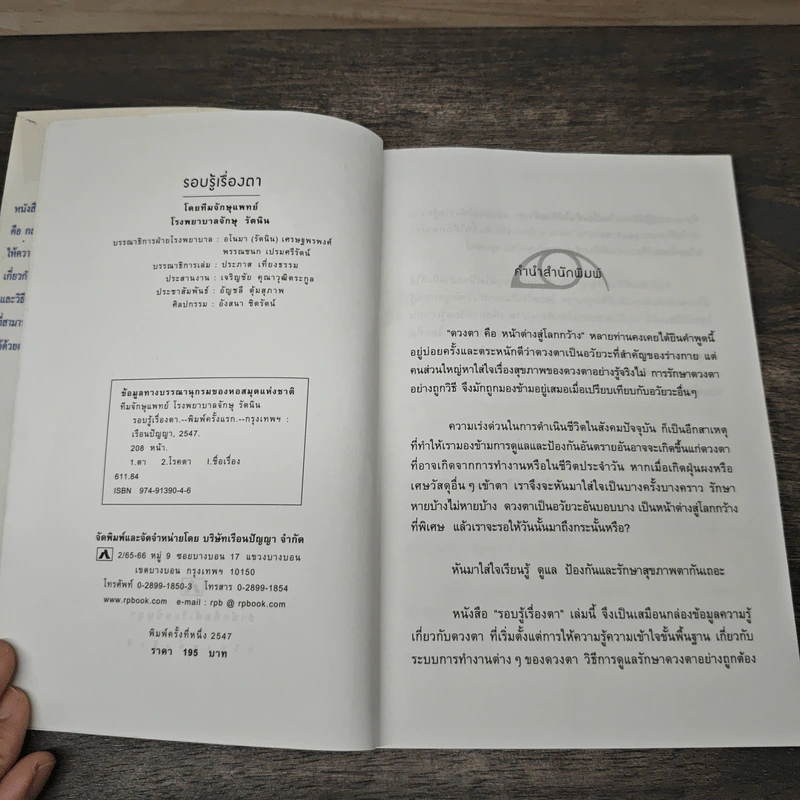 หนังสื
คือ
ให้ความ
เกี่ยวกั
และวิธี
ที่สามาร
รอบรู้เรื่องตา
โดยทีมจักษุแพทย์
โรงพยาบาลจักษุ รัตนิน
บรรณาธิการฝ่ายโรงพยาบาล : อโนมา (รัตนิน) เศรษฐพรพงศ์
พรรณชนก เปรมศรีรัตน์
บรรณาธิการเล่ม : ประภาส เที่ยงธรรม
ประสานงาน : เจริญชัย คุณาวุฒิตระกูล
ประชาสัมพันธ์ : อัญชลี ตุ้มสุภาพ
ศิลปกรรม : อังสนา ชิตรัตน์
ข้อมูลทางบรรณานุกรมของหอสมุดแห่งชาติ
ทีมจักษุแพทย์ โรงพยาบาลจักษุ รัตนิน
รอบรู้เรื่องตา.--พิมพ์ครั้งแรก.--กรุงเทพฯ :
เรือนปัญญา, 2547.
208 หน้า.
1.ตา 2.โรคตา I.ชื่อเรื่อง
611.84
ISBN 974-91390-4-6
จัดพิมพ์และจัดจำหน่ายโดย บริษัทเรือนปัญญา จำกัด
2/65-66 หมู่ 9 ซอยบางบอน 17 แขวงบางบอน
เขตบางบอน กรุงเทพฯ 10150
โทรศัพท์ 0-2899-1850-3 โทรสาร 0-2899-1854
www.rpbook.com e-mail : rpb @ rpbook.com
พิมพ์ครั้งที่หนึ่ง 2547
ราคา 195 บาท
คำนำสำนักพิมพ์
"ดวงตา คือ หน้าต่างสู่โลกกว้าง" หลายท่านคงเคยได้ยินคำพูดนี้
อยู่บ่อยครั้งและตระหนักดีว่าดวงตาเป็นอวัยวะที่สำคัญของร่างกาย แต่
คนส่วนใหญ่หาใส่ใจเรื่องสุขภาพของดวงตาอย่างรู้จริงไม่ การรักษาดวงตา
อย่างถูกวิธี จึงมักถูกมองข้ามอยู่เสมอเมื่อเปรียบเทียบกับอวัยวะอื่นๆ
ความเร่งด่วนในการดำเนินชีวิตในสังคมปัจจุบัน ก็เป็นอีกสาเหตุ
ที่ทำให้เรามองข้ามการดูแลและป้องกันอันตรายอันอาจจะเกิดขึ้นแก่ดวงตา
ที่อาจเกิดจากการทำงานหรือในชีวิตประจำวัน หากเมื่อเกิดฝุ่นผงหรือ
เศษวัสดุอื่นๆ เข้าตา เราจึงจะหันมาใส่ใจเป็นบางครั้งบางคราว รักษา
หายบ้างไม่หายบ้าง ดวงตาเป็นอวัยวะอันบอบบาง เป็นหน้าต่างสู่โลกกว้าง
ที่พิเศษ แล้วเราจะรอให้วันนั้นมาถึงกระนั้นหรือ?
หันมาใส่ใจเรียนรู้ ดูแล ป้องกันและรักษาสุขภาพตากันเถอะ
หนังสือ "รอบรู้เรื่องตา" เล่มนี้ จึงเป็นเสมือนกล่องข้อมูลความรู้
เกี่ยวกับดวงตา ที่เริ่มตั้งแต่การให้ความรู้ความเข้าใจขั้นพื้นฐาน เกี่ยวกับ
ระบบการทำงานต่างๆ ของดวงตา วิธีการดูแลรักษาดวงตาอย่างถูกต้อง